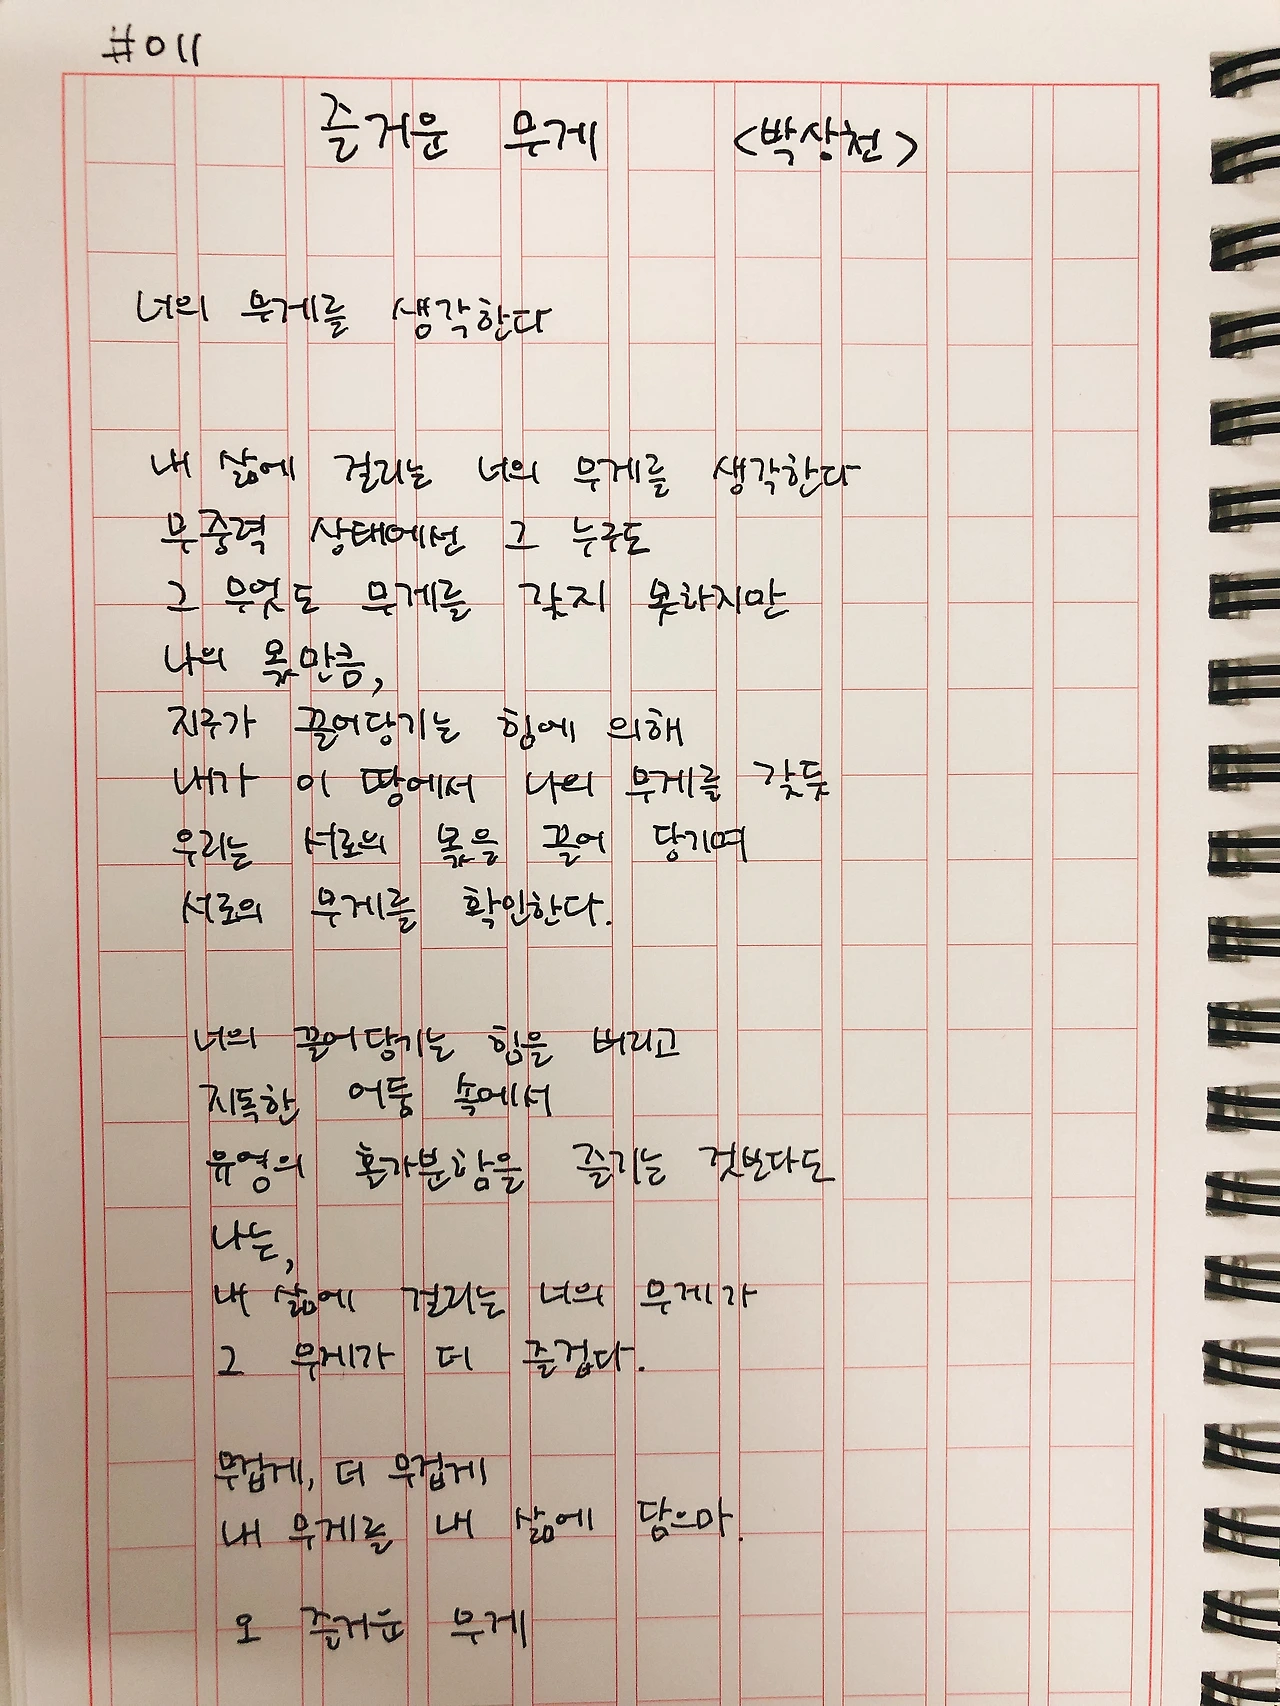 #011
즐거운 무게 <박상천>
너의 무게를 생각한다
내 삶에 걸리는 너의 무게를 생각한다
무중력 상태에선 그 누구도
그 무엇도 무게를 갖지 못하지만
나의 몫만큼,
지구가 끌어당기는 힘에 의해
내가 이 땅에서 나의 무게를 갖듯
우리는 서로의 몫을 끌어 당기며
서로의 무게를 확인한다.
너의 끌어당기는 힘을 버리고
지독한 어둠 속에서
유영의 홀가분함을 즐기는 것보다도
나는,
내 삶에 걸리는 너의 무게가
그 무게가 더 즐겁다.
무겁게, 더 무겁게
내 무게를 내 삶에 담으마.
오 즐거운 무게